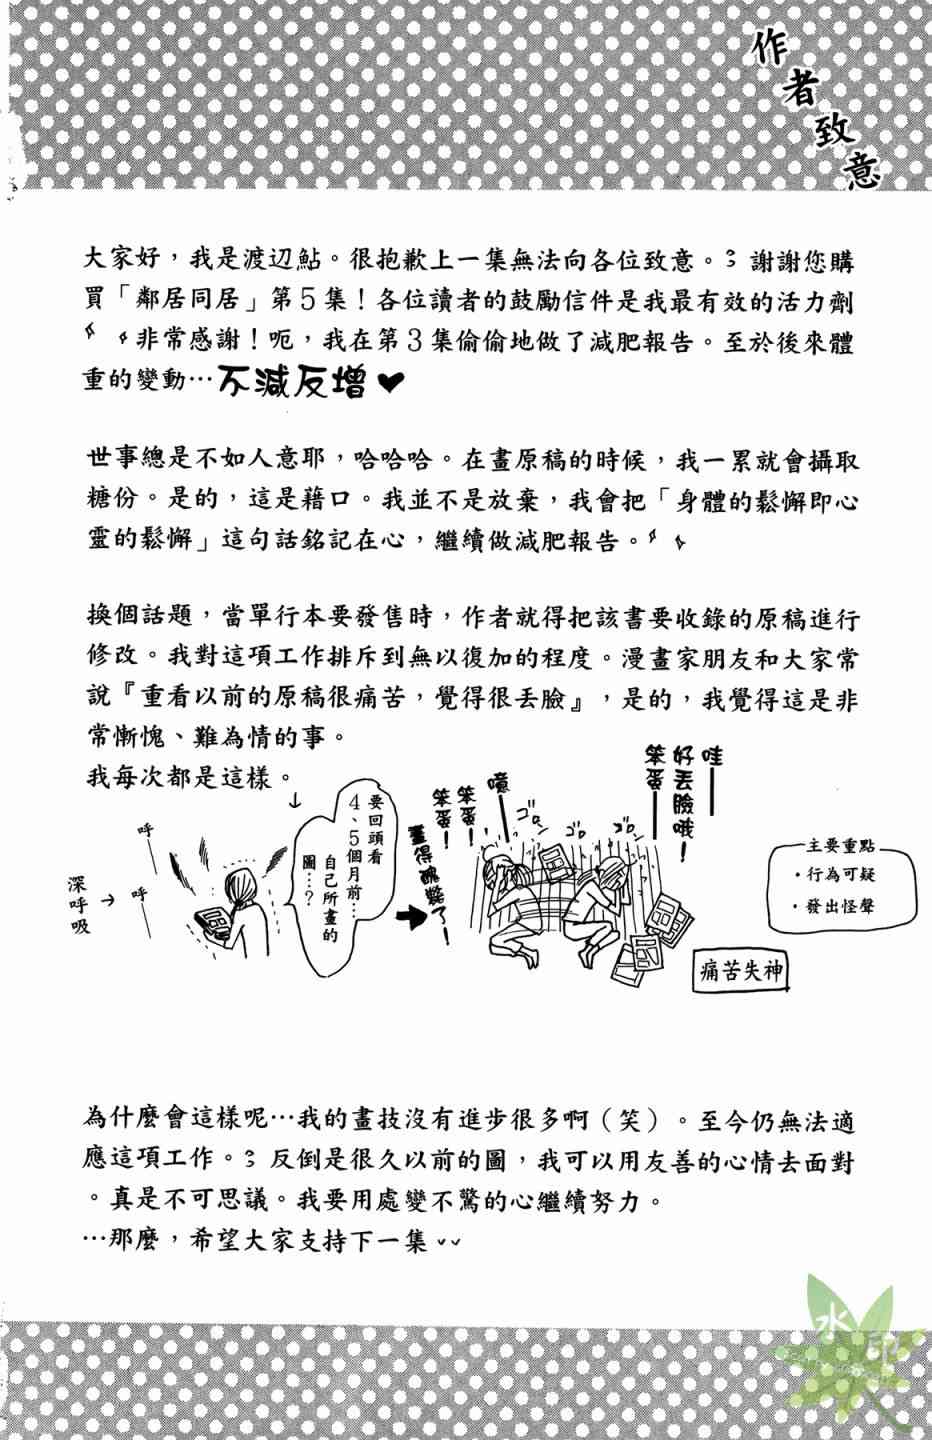 作者致意
大家好，我是渡辺鮎。很抱歉上一集無法向各位致意。謝謝您購
買「鄰居同居」第5集！各位讀者的鼓勵信件是我最有效的活力劑
非常感謝！呃，我在第3集偷偷地做了減肥報告。至於後來體
重的變動…不減反增♥
世事總是不如人意耶，哈哈哈。在畫原稿的時候，我一累就會攝取
糖份。是的，這是藉口。我並不是放棄，我會把「身體的鬆懈即心
靈的鬆懈」這句話銘記在心，繼續做減肥報告。
換個話題，當單行本要發售時，作者就得把該書要收錄的原稿進行
修改。我對這項工作排斥到無以復加的程度。漫畫家朋友和大家常
說『重看以前的原稿很痛苦，覺得很丟臉』，是的，我覺得這是非
常慚愧、難為情的事。
我每次都是這樣。
↓
深呼吸
→
呼
｜
呼
｜
要回頭看
4、5個月前…
自己所畫的
圖…？
畫得醜斃了！
笨蛋！
笨蛋！
噫——
ゴロン
ゴロ
ゴロ
ゴロン
笨蛋——
好丟臉哦！
哇——
痛苦失神
主要重點
・行為可疑
・發出怪聲
為什麼會這樣呢…我的畫技沒有進步很多啊（笑）。至今仍無法適
應這項工作。反倒是很久以前的圖，我可以用友善的心情去面對
。真是不可思議。我要用處變不驚的心繼續努力。
…那麼，希望大家支持下一集
水印